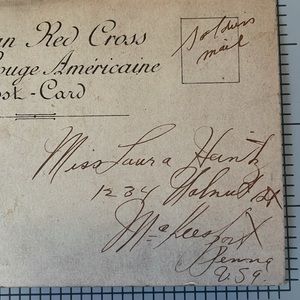 an Red Cross
ouge Américaine
ost-Card
Soldiers
mail
Miss Laura
1234 Walnut St
McKeesport
Penna
USA